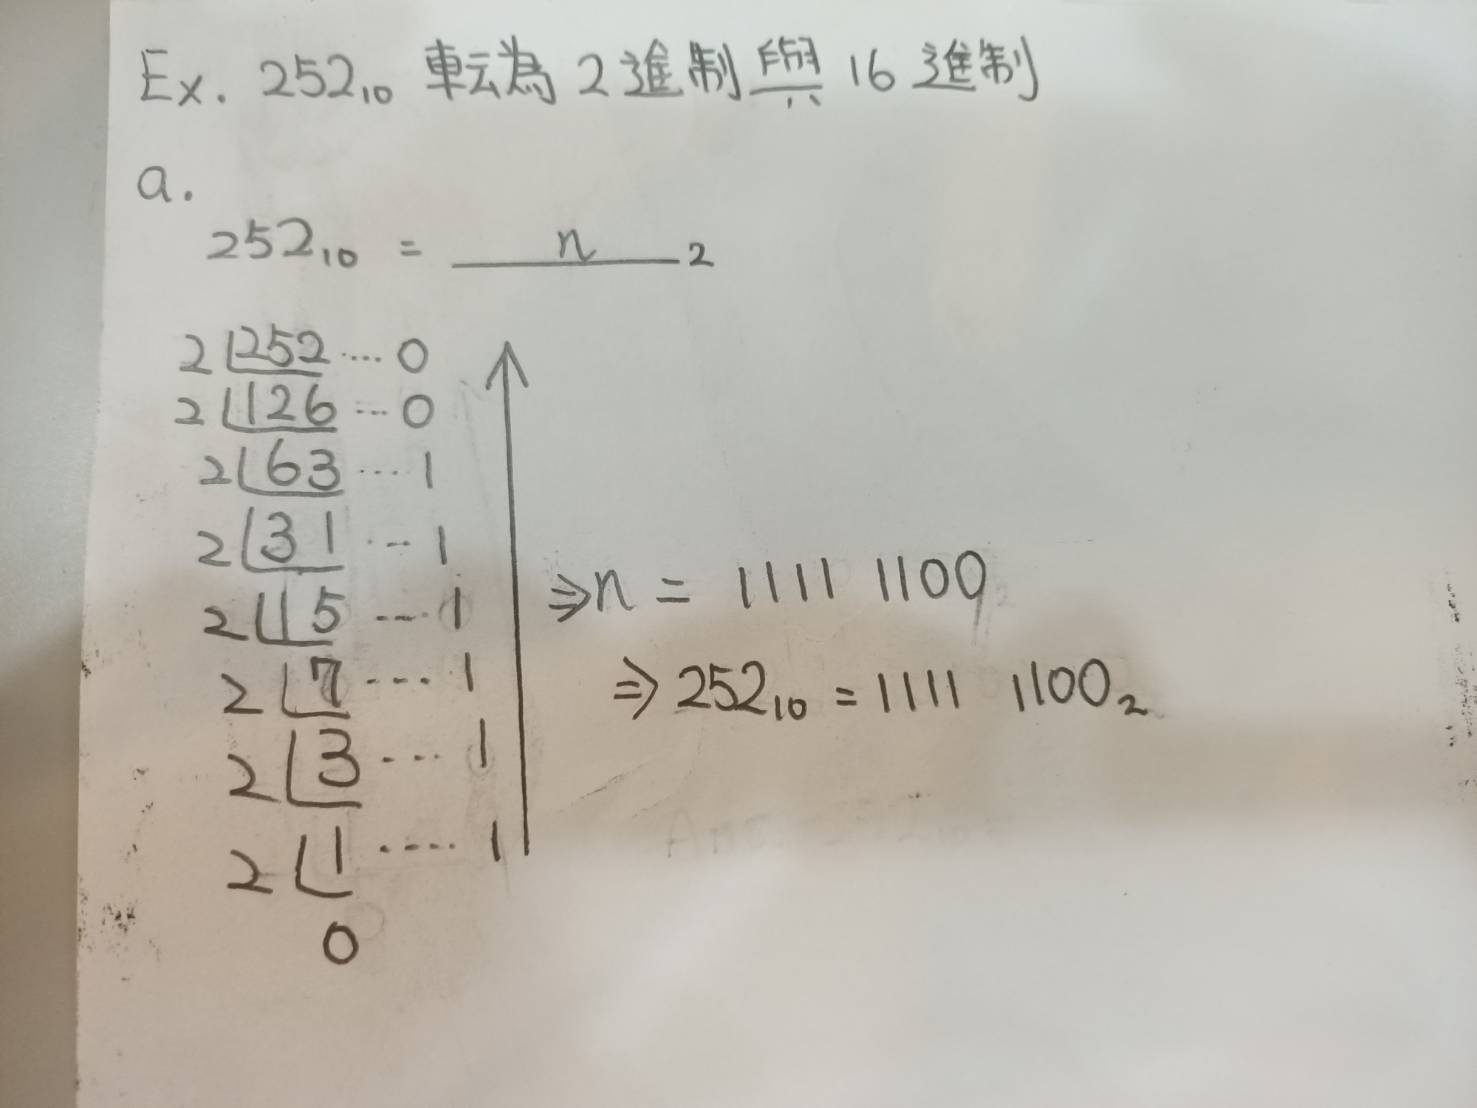 Ex. 252₁₀ 転為 2 進制與 16 進制
a.
252₁₀ = n ₂
2 252 .... 0
2 126 ... 0
2 63 ... 1
2 31 ... 1
2 15 .... 1
2 7 .... 1
2 3 .... 1
2 1 ..... 1
0
⇒ n = 1111 1100
⇒ 252₁₀ = 1111 1100₂